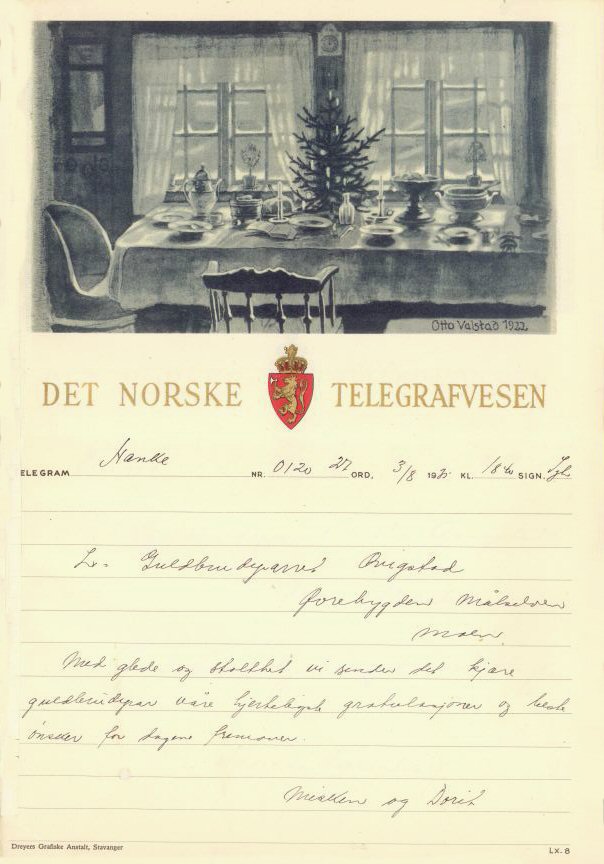 Otto Valstad 1922.
DET NORSKE TELEGRAFVESEN
ELEGRAM Hanke NR. 0120 27 ORD. 3/8 193 KL. 1840 SIGN.
Lx. Guldbrudeparret Ovigstad
Øvrebygden Målselven
Moen.
Med glede og stolthet vi sender det kjære
guldbrudepar våre hjerteligste gratulasjoner og beste
ønsker for dagene fremover.
og Dorit
Dreyers Grafiske Anstalt, Stavanger
LX. 8